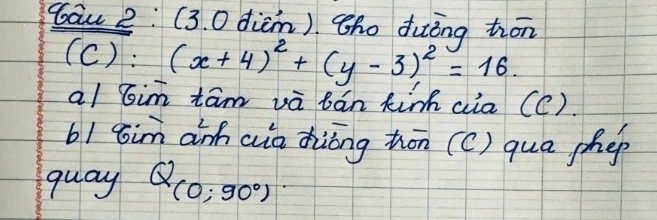 Câu 2 : (3.0 điểm). Cho đường tròn
(C) : (x + 4)² + (y - 3)² = 16.
a/ Tìm tâm và bán kính của (C).
b/ Tìm ảnh của đường tròn (C) qua phép
quay Q(O; 90°)